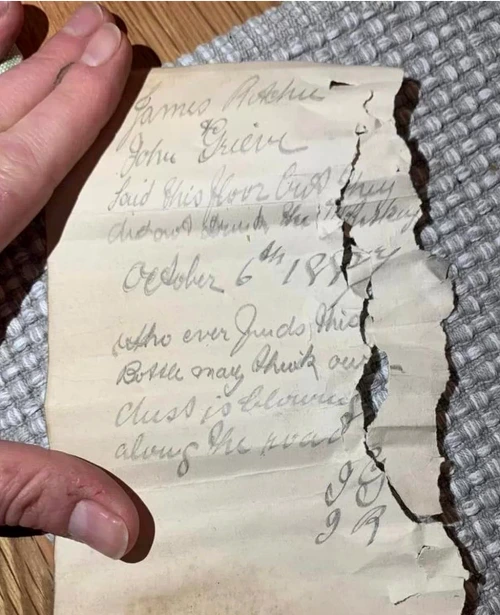 James Ritchie
& John Grieve
laid this floor but they
did not drink the Whiskey
October 6th 1887
who ever finds this
Bottle may think our
dust is blowing
along the road
J G
J R